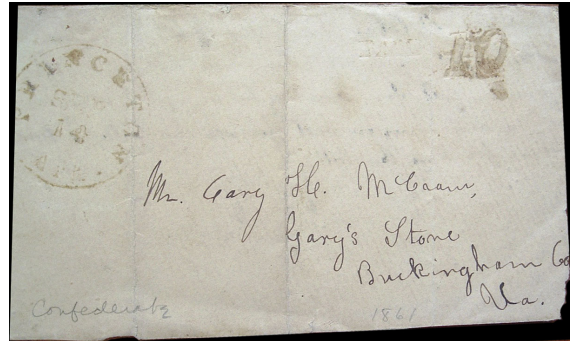 PRINCETON
18
10
Mr. Cary H. McCraw,
Gary's Store
Buckingham Co
Va.
Confederate
1861